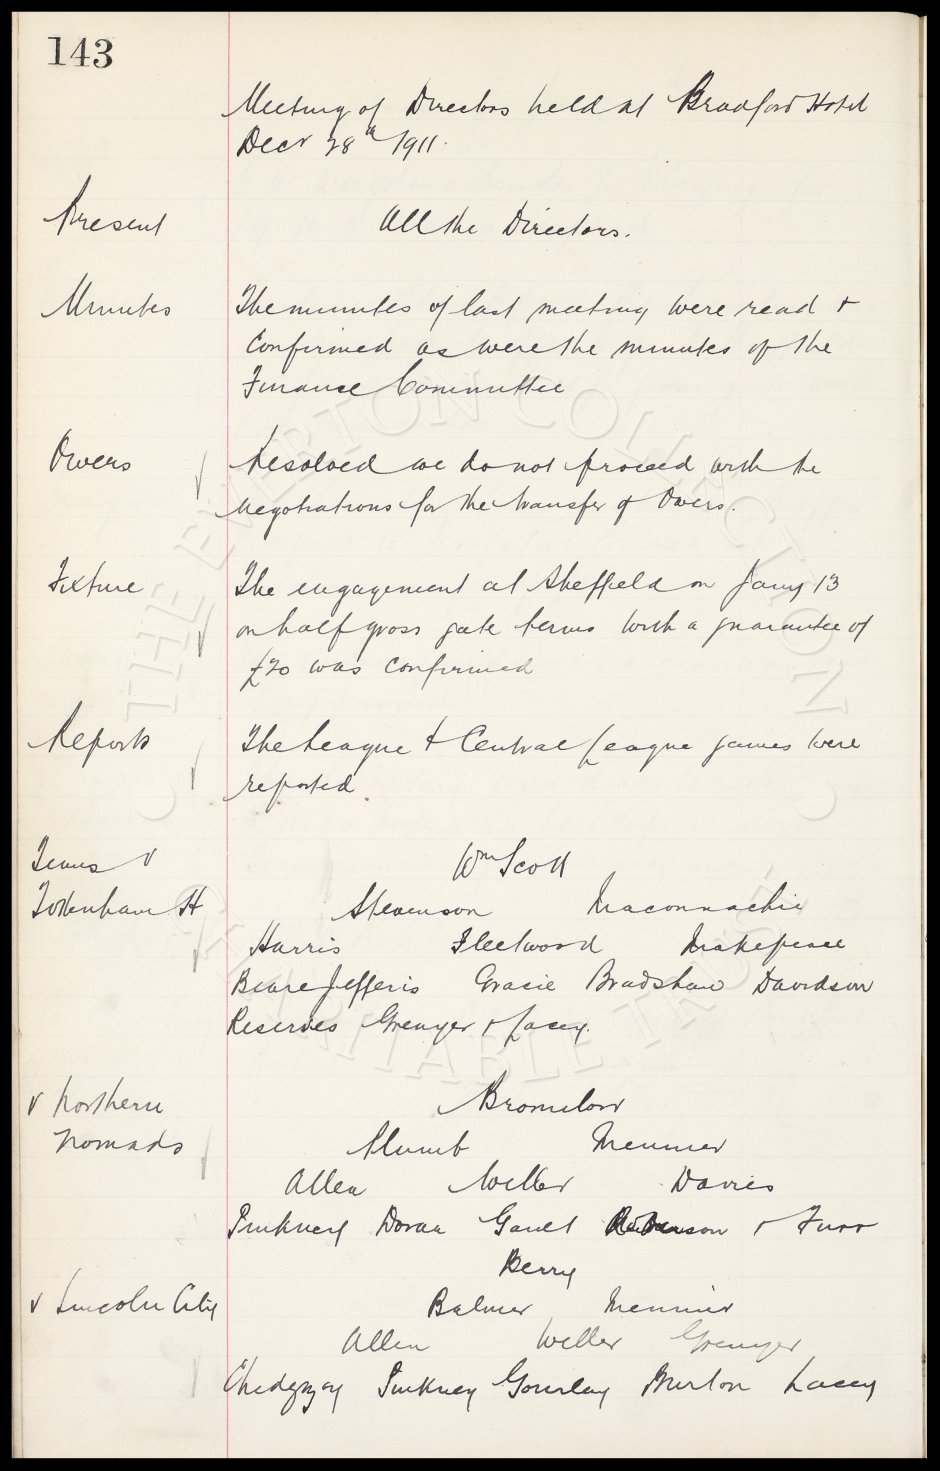 143
Meeting of Directors held at Bradford Hotel
Decr 28th 1911.
Present All the Directors.
Minutes The minutes of last meeting were read &
Confirmed as were the minutes of the
Finance Committee
Owers Resolved we do not proceed with the
negotiations for the transfer of Owers.
Fixture The engagement at Sheffield on Jany 13
on half gross gate terms with a guarantee of
£20 was confirmed
Reports The League & Central League games were
reported
Teams v Wm Scott
Tottenham H Stevenson Maconnachie
Harris Fleetwood Makepeace
Beare Jefferis Gracie Bradshaw Davidson
Reserves Grenyer & Lacey.
v Northern Bromilow
Nomads Plumb Meunier
Allen Weller Davies
Pinkney Doran Gault Robinson & Furr
Berry
v Lincoln City Balmer Meunier
Allen Weller Grenyer
Chedgzoy Pinkney Gourlay Burton Lacey
THE EVERTON COLLECTION
CHARITABLE TRUST